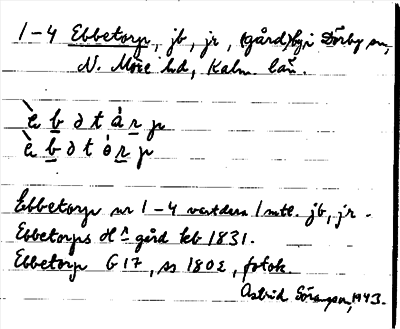 1-4 Ebbetorp, jb, jr, (gård) by i Dörby sn,
N. Möre hd, Kalm. län.
è b ə t à r p
è b ə t ò r p
Ebbetorp nr 1-4 vardera 1 mtl. jb, jr.
Ebbetorps gård leb 1831.
Ebbetorp G 17, ss 1802, fotok.
Astrid 1943.